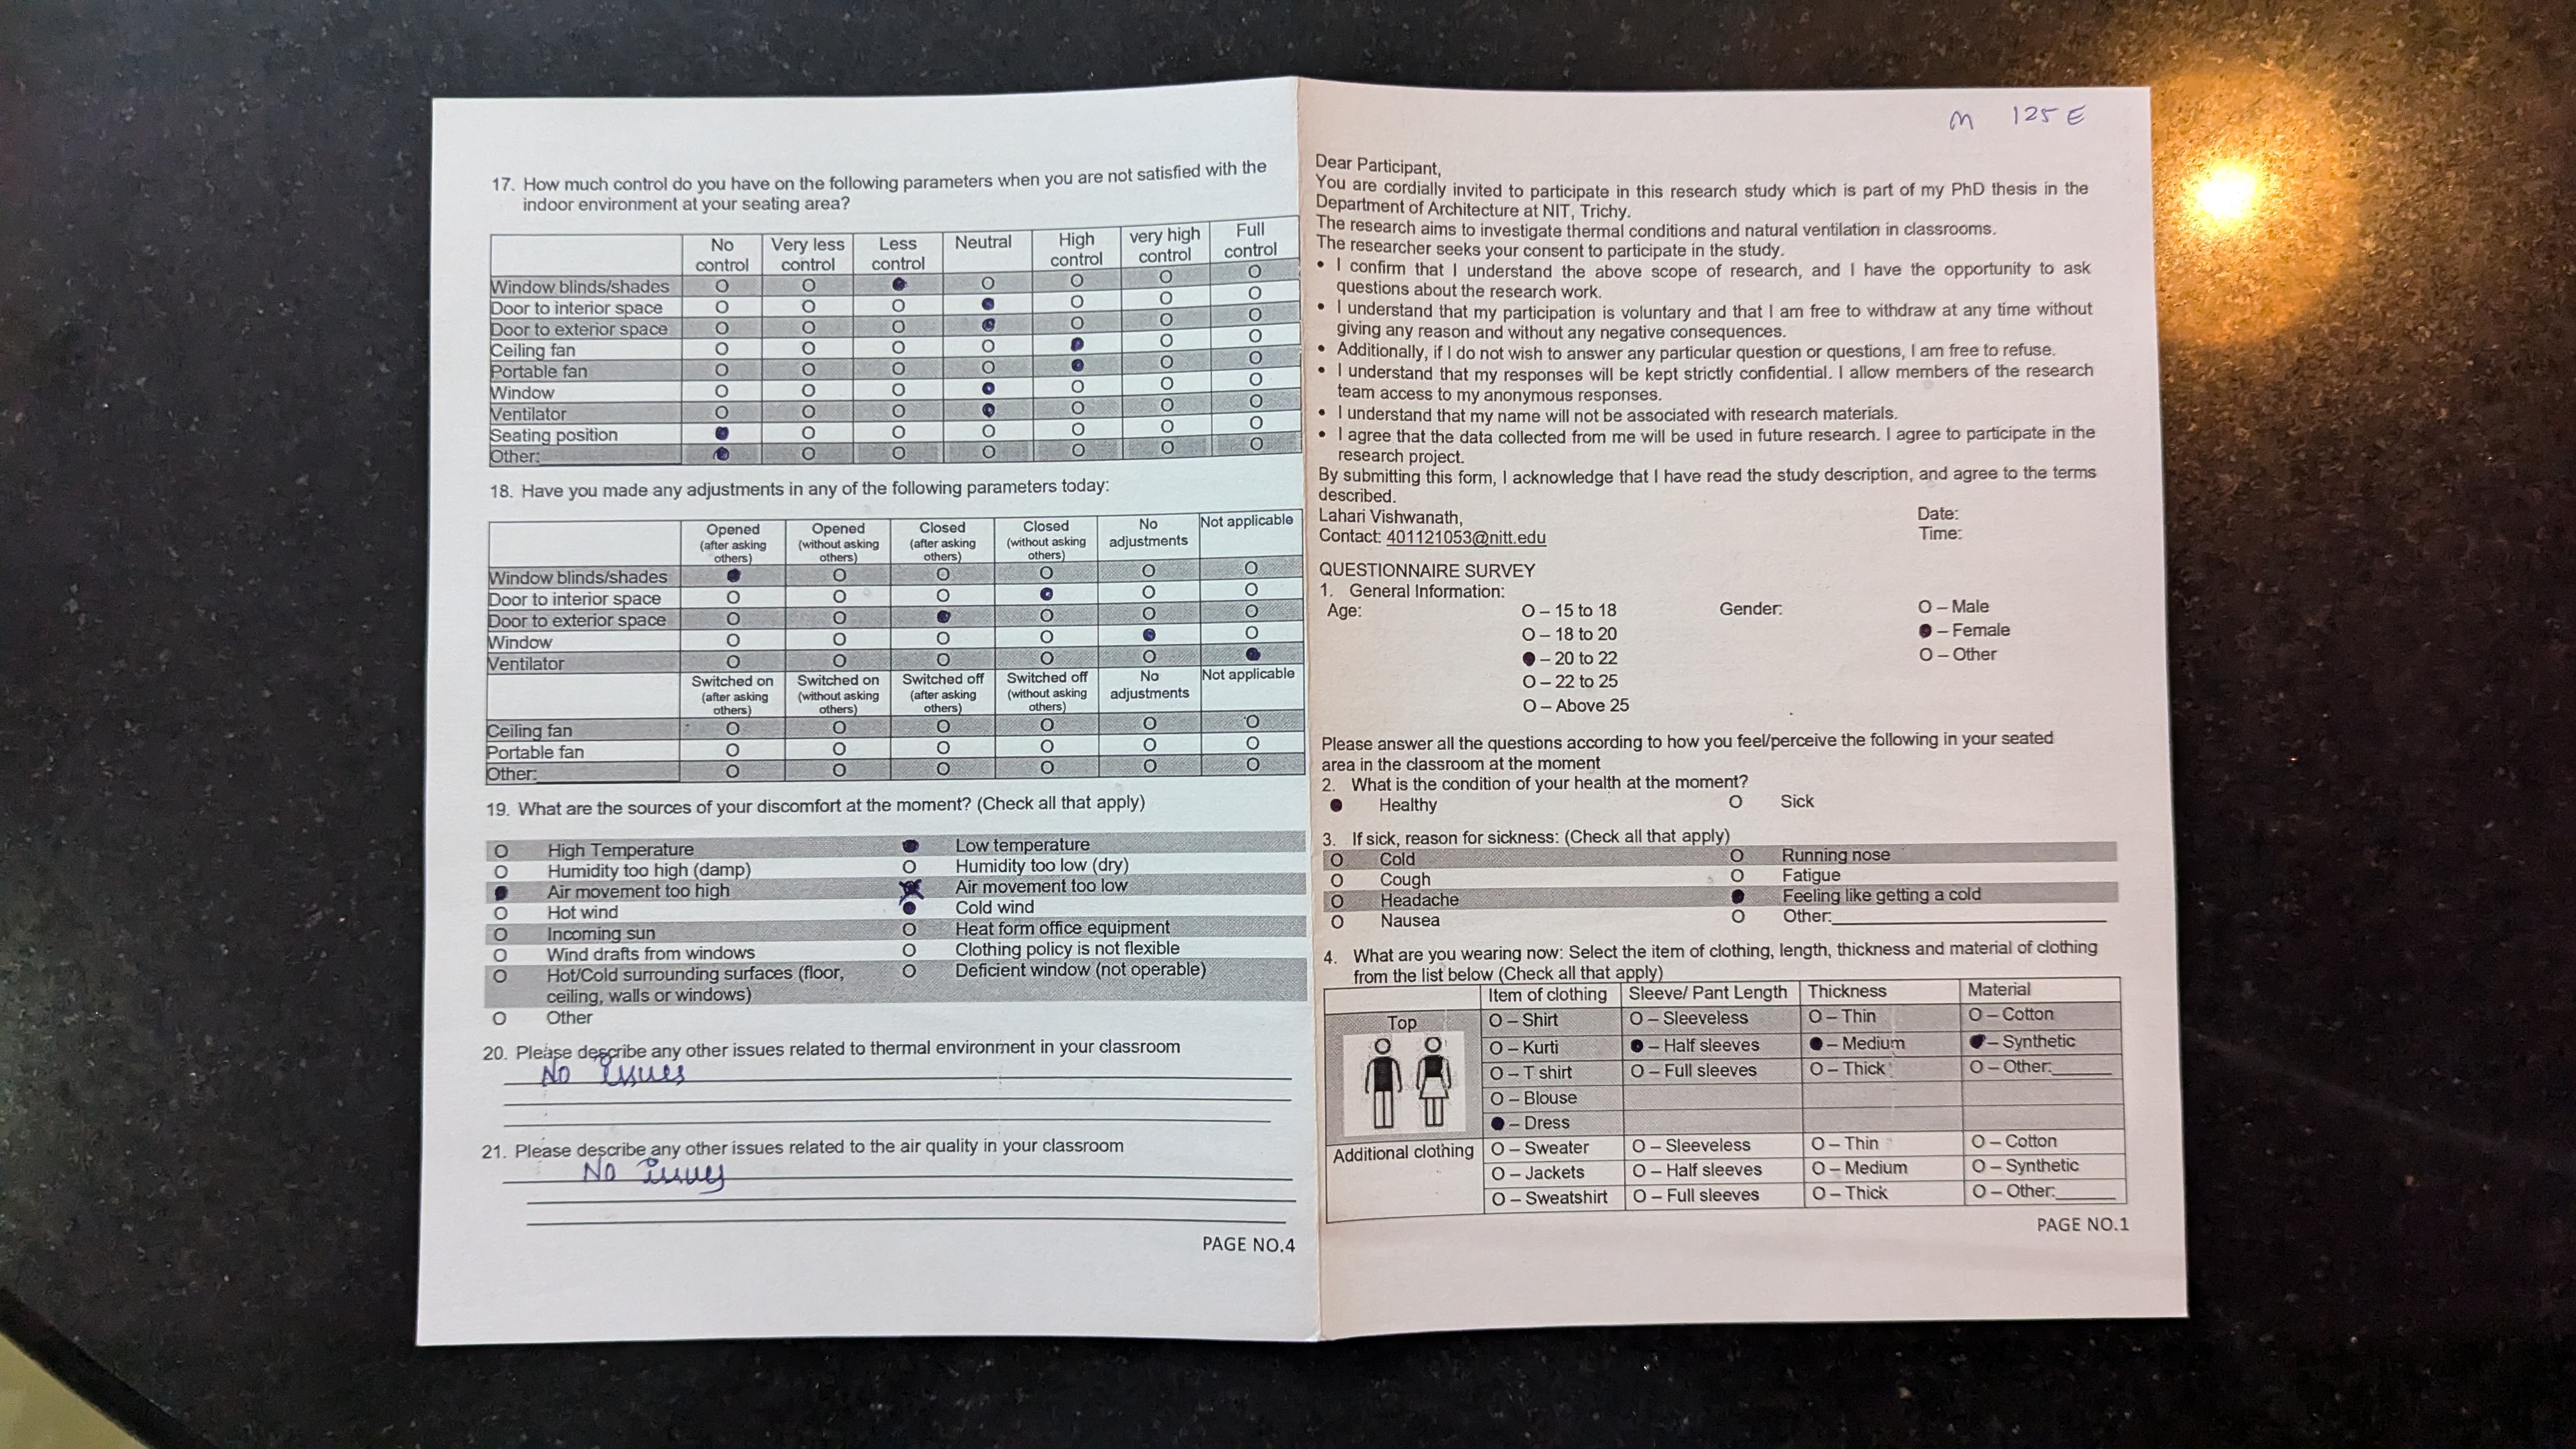 17. How much control do you have on the following parameters when you are not satisfied with the
indoor environment at your seating area?
No control Very less control Less control Neutral High control very high control Full control
Window blinds/shades O O ● O O O O
Door to interior space O O O ● O O O
Door to exterior space O O O ● O O O
Ceiling fan O O O O ● O O
Portable fan O O O O ● O O
Window O O O ● O O O
Ventilator O O O ● O O O
Seating position ● O O O O O O
Other: ● O O O O O O
18. Have you made any adjustments in any of the following parameters today:
Opened (after asking others) Opened (without asking others) Closed (after asking others) Closed (without asking others) No adjustments Not applicable
Window blinds/shades ● O O O O O
Door to interior space O O O ● O O
Door to exterior space O O ● O O O
Window O O O O ● O
Ventilator O O O O O ●
Switched on (after asking others) Switched on (without asking others) Switched off (after asking others) Switched off (without asking others) No adjustments Not applicable
Ceiling fan O O O O O O
Portable fan O O O O O O
Other: O O O O O O
19. What are the sources of your discomfort at the moment? (Check all that apply)
O High Temperature ● Low temperature
O Humidity too high (damp) O Humidity too low (dry)
● Air movement too high Air movement too low
O Hot wind ● Cold wind
O Incoming sun O Heat form office equipment
O Wind drafts from windows O Clothing policy is not flexible
O Hot/Cold surrounding surfaces (floor, O Deficient window (not operable)
ceiling, walls or windows)
O Other
20. Please describe any other issues related to thermal environment in your classroom
No issues
21. Please describe any other issues related to the air quality in your classroom
No issues
PAGE NO.4
M 125 E
Dear Participant,
You are cordially invited to participate in this research study which is part of my PhD thesis in the
Department of Architecture at NIT, Trichy.
The research aims to investigate thermal conditions and natural ventilation in classrooms.
The researcher seeks your consent to participate in the study.
• I confirm that I understand the above scope of research, and I have the opportunity to ask
questions about the research work.
• I understand that my participation is voluntary and that I am free to withdraw at any time without
giving any reason and without any negative consequences.
• Additionally, if I do not wish to answer any particular question or questions, I am free to refuse.
• I understand that my responses will be kept strictly confidential. I allow members of the research
team access to my anonymous responses.
• I understand that my name will not be associated with research materials.
• I agree that the data collected from me will be used in future research. I agree to participate in the
research project.
By submitting this form, I acknowledge that I have read the study description, and agree to the terms
described.
Lahari Vishwanath, Date:
Contact: 401121053@nitt.edu Time:
QUESTIONNAIRE SURVEY
1. General Information:
Age: O – 15 to 18 Gender: O – Male
O – 18 to 20 ● – Female
● – 20 to 22 O – Other
O – 22 to 25
O – Above 25
Please answer all the questions according to how you feel/perceive the following in your seated
area in the classroom at the moment
2. What is the condition of your health at the moment?
● Healthy O Sick
3. If sick, reason for sickness: (Check all that apply)
O Cold O Running nose
O Cough O Fatigue
O Headache ● Feeling like getting a cold
O Nausea O Other:
4. What are you wearing now: Select the item of clothing, length, thickness and material of clothing
from the list below (Check all that apply)
Item of clothing Sleeve/ Pant Length Thickness Material
Top O – Shirt O – Sleeveless O – Thin O – Cotton
O – Kurti ● – Half sleeves ● – Medium ● – Synthetic
O – T shirt O – Full sleeves O – Thick O – Other:
O – Blouse
● – Dress
Additional clothing O – Sweater O – Sleeveless O – Thin O – Cotton
O – Jackets O – Half sleeves O – Medium O – Synthetic
O – Sweatshirt O – Full sleeves O – Thick O – Other:
PAGE NO.1